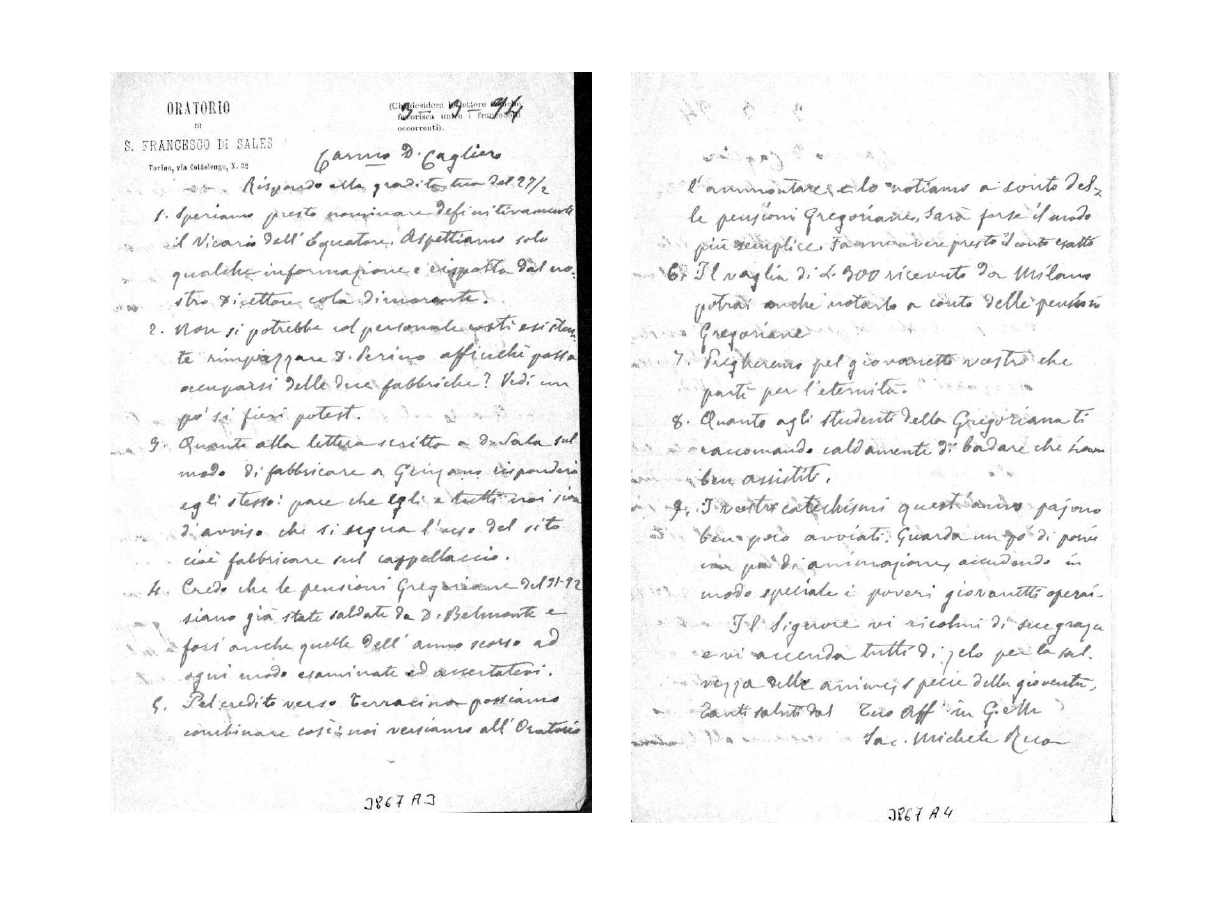 ORATORIO
DI
S. FRANCESCO DI SALES
Torino, via Cottolengo, N. 32
(Chi desidera lettere
favorisca unire i francobolli
occorrenti).
3-3-94
Carmo D. Cagliero
Rispondo alla gradita tua del 27/2
1. Speriamo presto nominare definitivamente
il Vicario dell'Equatore. Aspettiamo solo
qualche informazione e risposta dal no-
stro Direttore colà dimorante.
2. Non si potrebbe col personale costì esisten-
te rimpiazzare D. Perino affinchè possa
occuparsi delle due fabbriche? Vedi un
po' si fieri potest.
3. Quanto alla lettera scritta a D. Sala sul
modo di fabbricare a Genzano risponderà
egli stesso: pare che egli e tutti noi siam
d'avviso che si segua l'uso del sito
cioè fabbricare sul cappellaccio.
4. Credo che le pensioni Gregoriane del 91-92
siano già state saldate da D. Belmonte e
forsi anche quelle dell'anno scorso ad
ogni modo esaminate ed accertatevi.
5. Pel credito verso Terracina possiamo
combinare così: noi versiamo all'Oratorio
J867 A3
l'ammontare, e lo notiamo a conto del-
le pensioni Gregoriane, Sarà forse il modo
più semplice. Fammi avere presto il conto esatto
6. Il vaglia di L. 300 ricevuto da Milano
potrai anche notarlo a conto delle pensioni
Gregoriane
7. Pregheremo pel giovanetto vostro che
partì per l'eternità.
8. Quanto agli studenti della Gregoriana ti
raccomando caldamente di badare che siano
ben assistiti.
9. I vostri catechismi quest'anno pajono
ben poco avviati. Guarda un po' di
un po' di animazione, accudendo in
modo speciale i poveri giovanetti operai.
Il Signore vi ricolmi di sue grazie
e vi accenda tutti di zelo per la sal-
vezza delle anime, specie della gioventù,
Tanti saluti dal Tuo Aff in G. e M.
Sac. Michele Rua
J867 A4